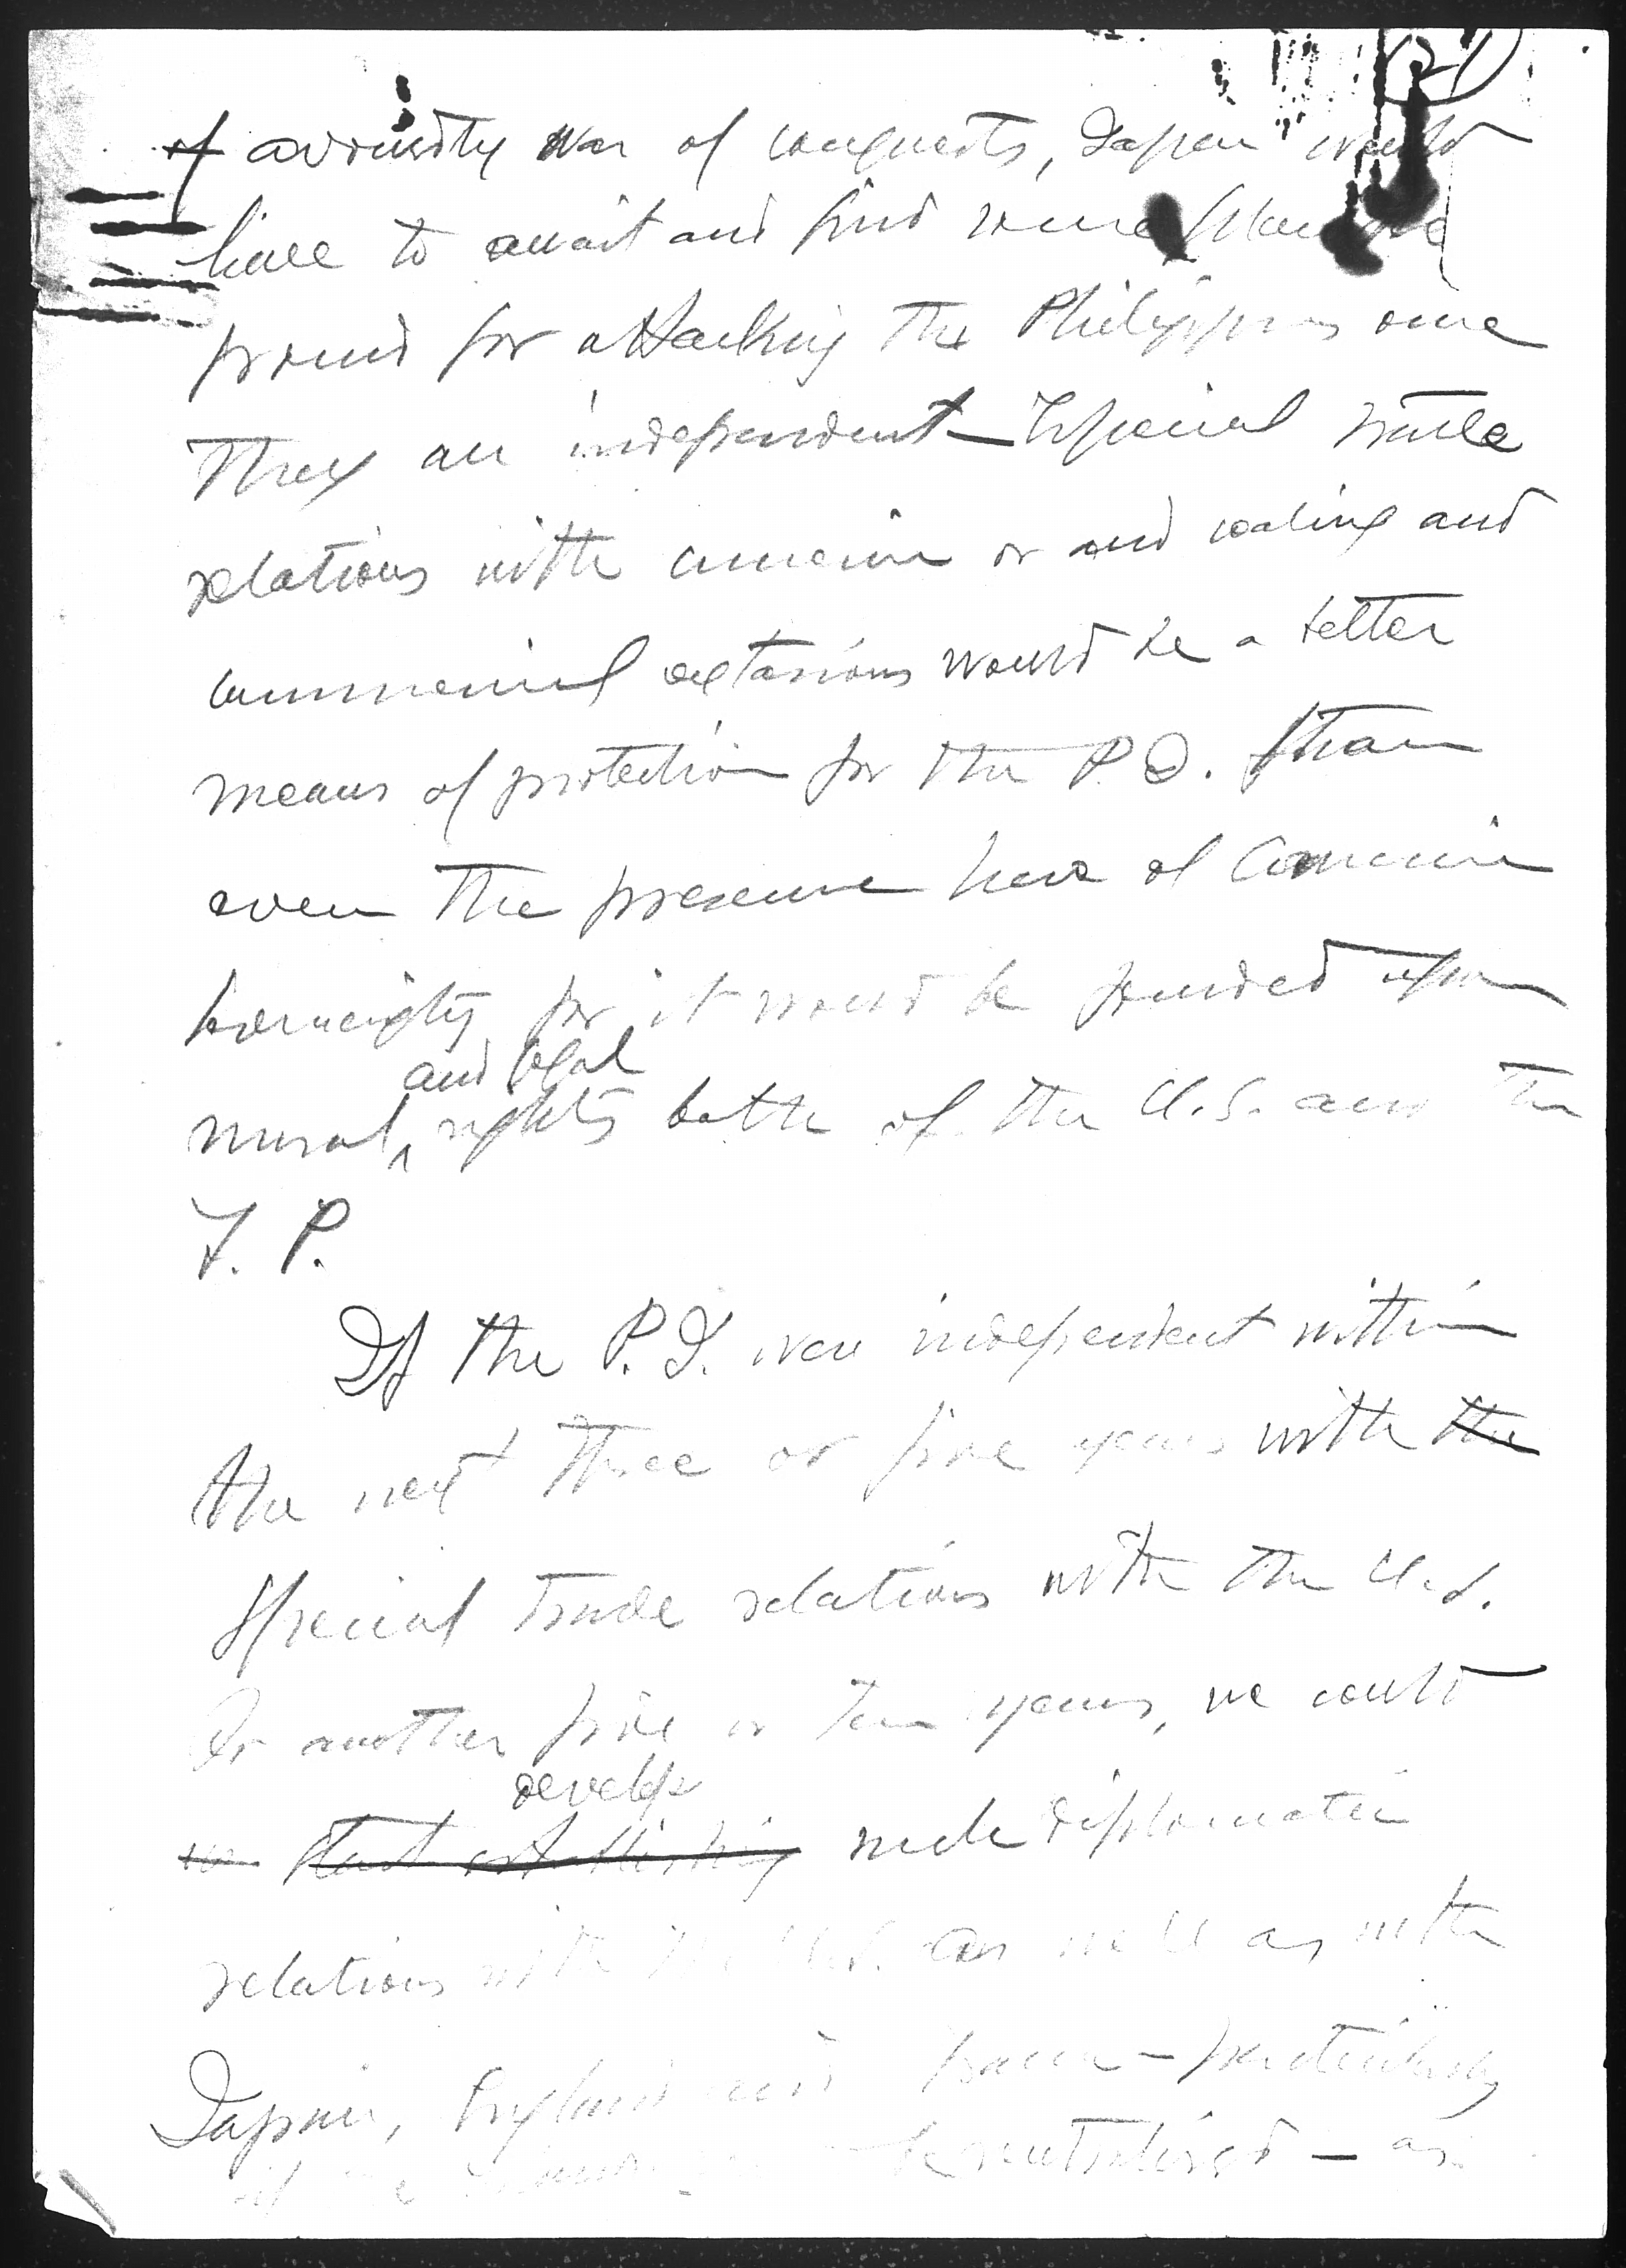 (21)
of avowedly war of conquests, Japan would
have to await and find some plausible
ground for attacking the Philippines once
they are independent — Special trade
relations with America or and coaling and
commercial stations would be a better
means of protection for the P.I. than
even the presence here of American
sovereignty for it would be founded upon
and legal
moral rights both of the U.S. and the
F. P.
If the P.I. were independent within
the next three or five years with the
special trade relations with the U.S.
for another five or ten years, we could
develop
start establishing such diplomatic
relations with the U.S. as well as with
Japan, England and France – particularly
if be neutralized – as